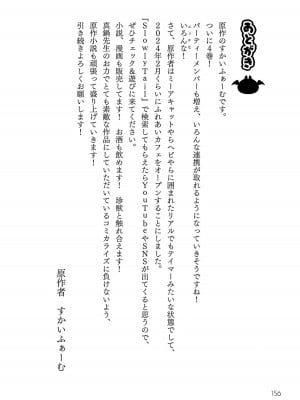 あとがき
原作のすかいふぁーむです。
ついに4巻!
パーティーメンバーも増え、いろんな連携が取れるようになっていきそうですね!
さて、原作者はミーアキャットやらヘビやらに囲まれたリアルでもテイマーみたいな状態でして、
2024年2月くらいにふれあいカフェをオープンすることにしました。
『SlowlyTail』で検索してもらえたらYouTubeやSNSが出てくると思うので、
ぜひチェック&遊びに来てください。
小説、漫画も販売してます! お酒も飲めます! 珍獣と触れ合えます!
真鍋先生のお力でとても素敵な作品にしていただいているコミカライズに負けないよう、
原作小説も頑張って盛り上げていきます!
引き続きよろしくお願いします!
原作者 すかいふぁーむ
156